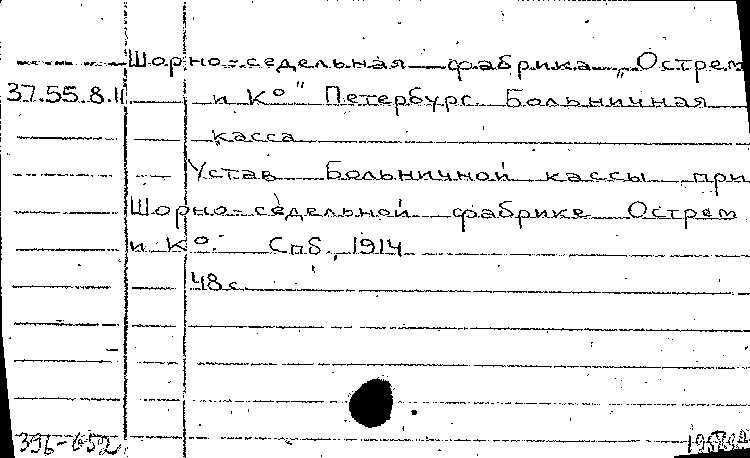 Шорно-седельная фабрика „Острем
37.55.8.11 и К°" Петербург. Больничная
касса
Устав Больничной кассы при
Шорно-седельной фабрике Острем
и К°. Спб., 1914
48 с.
396-652